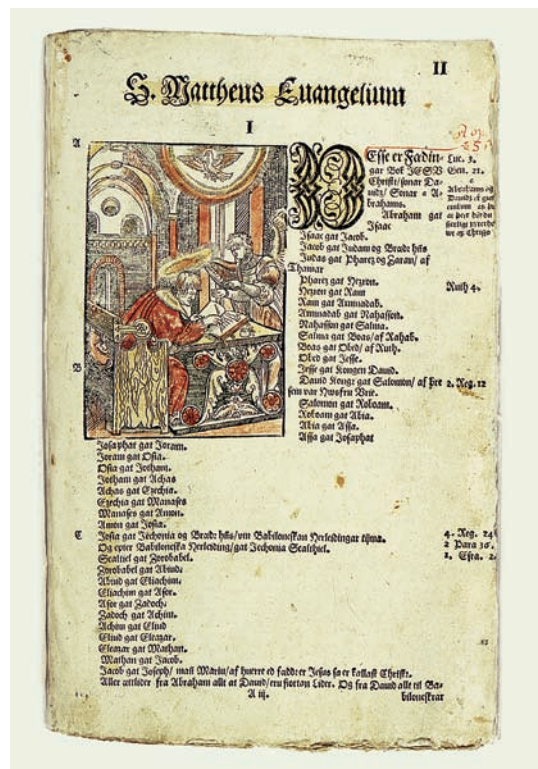 II
S. Mattheus Euangelium
I
A
Esse er Fædin-
gar Bok JESV
Christi/sonar Da-
uids/ Sonar A-
brahams.
Abraham gat
Isaac
Isaac gat Jacob.
Jacob gat Judam og Brædr hñs
Judas gat Pharez og Zaran/ af
Thamar
Pharez gat Hezron.
Hezron gat Ram
Ram gat Aminadab.
Aminadab gat Nahasson.
Nahasson gat Salma.
Salma gat Boas/ af Rahab.
Boas gat Obed/ af Ruth.
Obed gat Jesse.
Jesse gat Kongen Dauid.
B
Dauid Kongr gat Salomon/ af þre
sem var Hwsfru Vrie.
Salomon gat Roboam.
Roboam gat Abia.
Abia gat Assa.
Assa gat Josaphat
Josaphat gat Joram.
Joram gat Osia.
Osia gat Jotham.
Jotham gat Achas
Achas gat Ezechia.
Ezechia gat Manases
Manases gat Amon.
Amon gat Josia.
C
Josia gat Jechonia og Brædr hñs/vm Babiloneskan Herleidingar tijma.
Og epter Babiloneska Herleiding/gat Jechonia Sealthiel.
Sealtiel gat Zorobabel.
Zorobabel gat Abiud.
Abiud gat Eliachim.
Eliachim gat Asor.
Asor gat Zadoch.
Zadoch gat Achim.
Achim gat Eliud
Eliud gat Eleazar.
Eleazar gat Mathan.
Mathan gat Jacob.
Jacob gat Joseph/ mañ Mariu/af huerre ed fæddter Jesus sa er kallast Christr.
Aller ættlider fra Abraham allt at Dauid/eru fiortan Lider. Og fra Dauid allt til Ba-
A iij.
biloneskrar
Luc. 3.
Gen. 21.
Abrahams og
Dauids
Ruth 4.
2. Reg. 12
4. Reg. 24
2 Para 36.
1. Esra. 2.